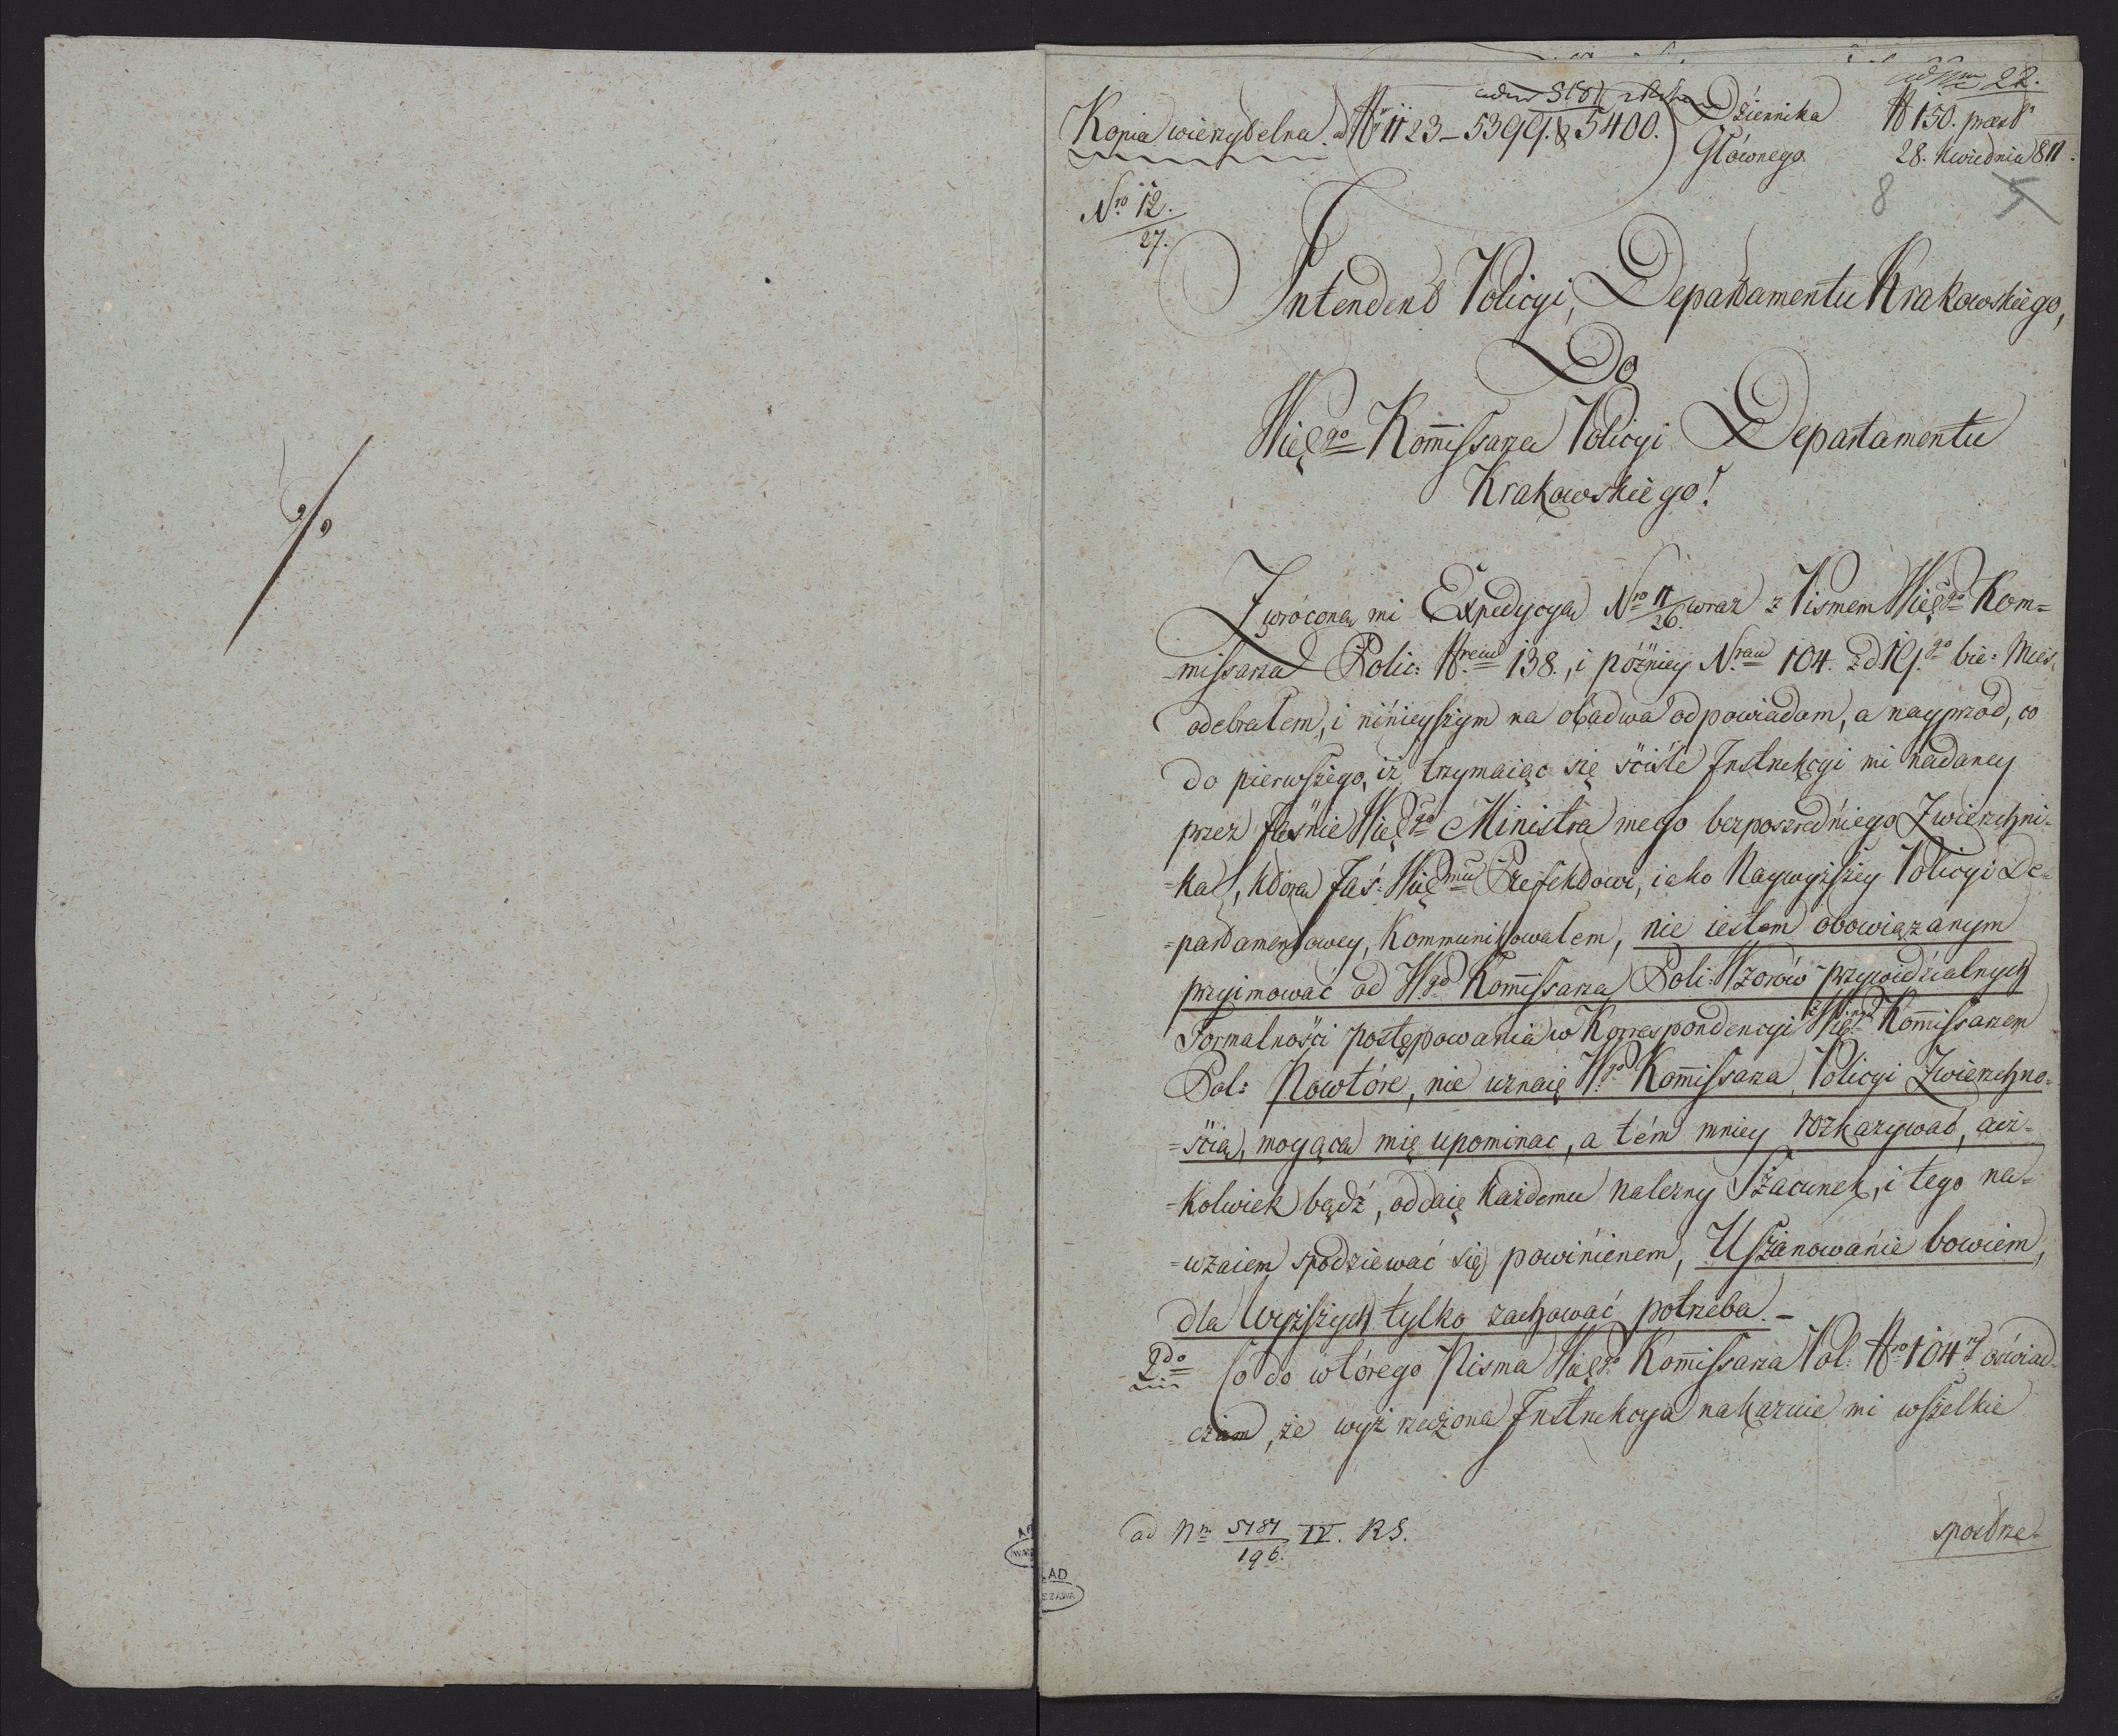 ad Nrm 22.
Kopia wierzytelna. ad N 1123 – 5399. & 5400. Dziennika Głównego
N 150. praes.
28. Kwietnia 811.
8 5
Nro 12.
27.
Intendent Policyi, Departamentu Krakowskiego,
Do
Wielgo Kommissarza Policyi Departamentu
Krakowskiego!
Zwróconą mi Expedycyą Nro 11/26. wraz z Pismem Wielgo Kom=
=missarza Polic: Nrem 138., i późniey Nrem 104. z d 19.go bie: Mies.
odebrałem, i ninieyszym na obadwa odpowiadam, a nayprzód, co
do pierwszego, iż trzymaiąc się ściśle Instrukcyi mi nadaney
przez Jaśnie Wielgo Ministra mego bezpośredniego Zwierzchni=
=ka, którą Jaś: Wielmu Prefektowi, iako Naywyższey Policyi De=
=partamentowey, Kommunikowałem, nie iestem obowiązanym
przyimować od Wgo Kommissarza Poli: Wzorów przywidzialnych
Formalności postępowania w Korrespondencyi z Wielm Kommissarzem
Pol: Powtóre, nie uznaię Wgo Kommissarza Policyi Zwierzchno=
=ścią, mogącą mię upominać, a tém mniey rozkazywać, acz=
=kolwiek bądź, oddaię każdemu należny Szacunek, i tego na=
=wzaiem spodziewać się powinienem, Uszanowanie bowiem,
dla Wyższych tylko zachować potrzeba. –
2do Co do wtórego Pisma Wielgo Kommissarza Pol: Nro 104 oświad=
=czam, że wyż rzeczona Instrukcya nakazuie mi wszelkie
ad Nrm 5181/196. IV. RS.
spostrze=